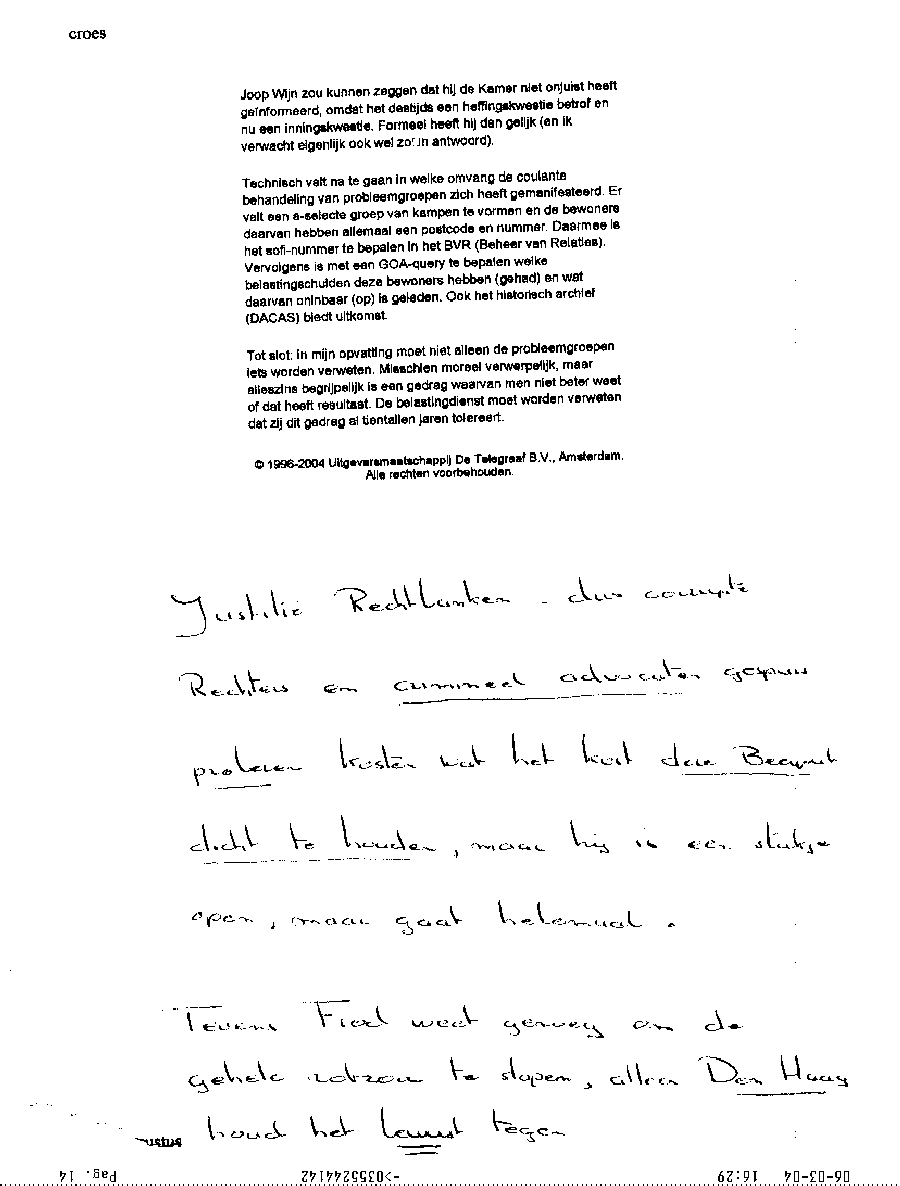 croes
Joop Wijn zou kunnen zeggen dat hij de Kamer niet onjuist heeft
geïnformeerd, omdat het destijds een heffingskwestie betrof en
nu een inningskwestie. Formeel heeft hij dan gelijk (en ik
verwacht eigenlijk ook wel zo'n antwoord).
Technisch valt na te gaan in welke omvang de coulante
behandeling van probleemgroepen zich heeft gemanifesteerd. Er
valt een a-selecte groep van kampen te vormen en de bewoners
daarvan hebben allemaal een postcode en nummer. Daarmee is
het sofi-nummer te bepalen in het BVR (Beheer van Relaties).
Vervolgens is met een GOA-query te bepalen welke
belastingschulden deze bewoners hebben (gehad) en wat
daarvan oninbaar (op) is geleden. Ook het historisch archief
(DACAS) biedt uitkomst.
Tot slot: in mijn opvatting moet niet alleen de probleemgroepen
iets worden verweten. Misschien moreel verwerpelijk, maar
alleszins begrijpelijk is een gedrag waarvan men niet beter weet
of dat heeft resultaat. De belastingdienst moet worden verweten
dat zij dit gedrag al tientallen jaren tolereert.
© 1996-2004 Uitgeversmaatschappij De Telegraaf B.V., Amsterdam.
Alle rechten voorbehouden.
Justitie Rechtbanken - dus corrupte
Rechters en crimineel advocaten gespuis
proberen kosten wat het kost deze Beerput
dicht te houden, maar hij is een stukje
open, maar gaat helemaal.
Tevens Fiod weet genoeg om de
gehele rotzooi te slopen, alleen Den Haag
houd het tegen
06-03-04 16:29 ->0355244142 Pag. 14